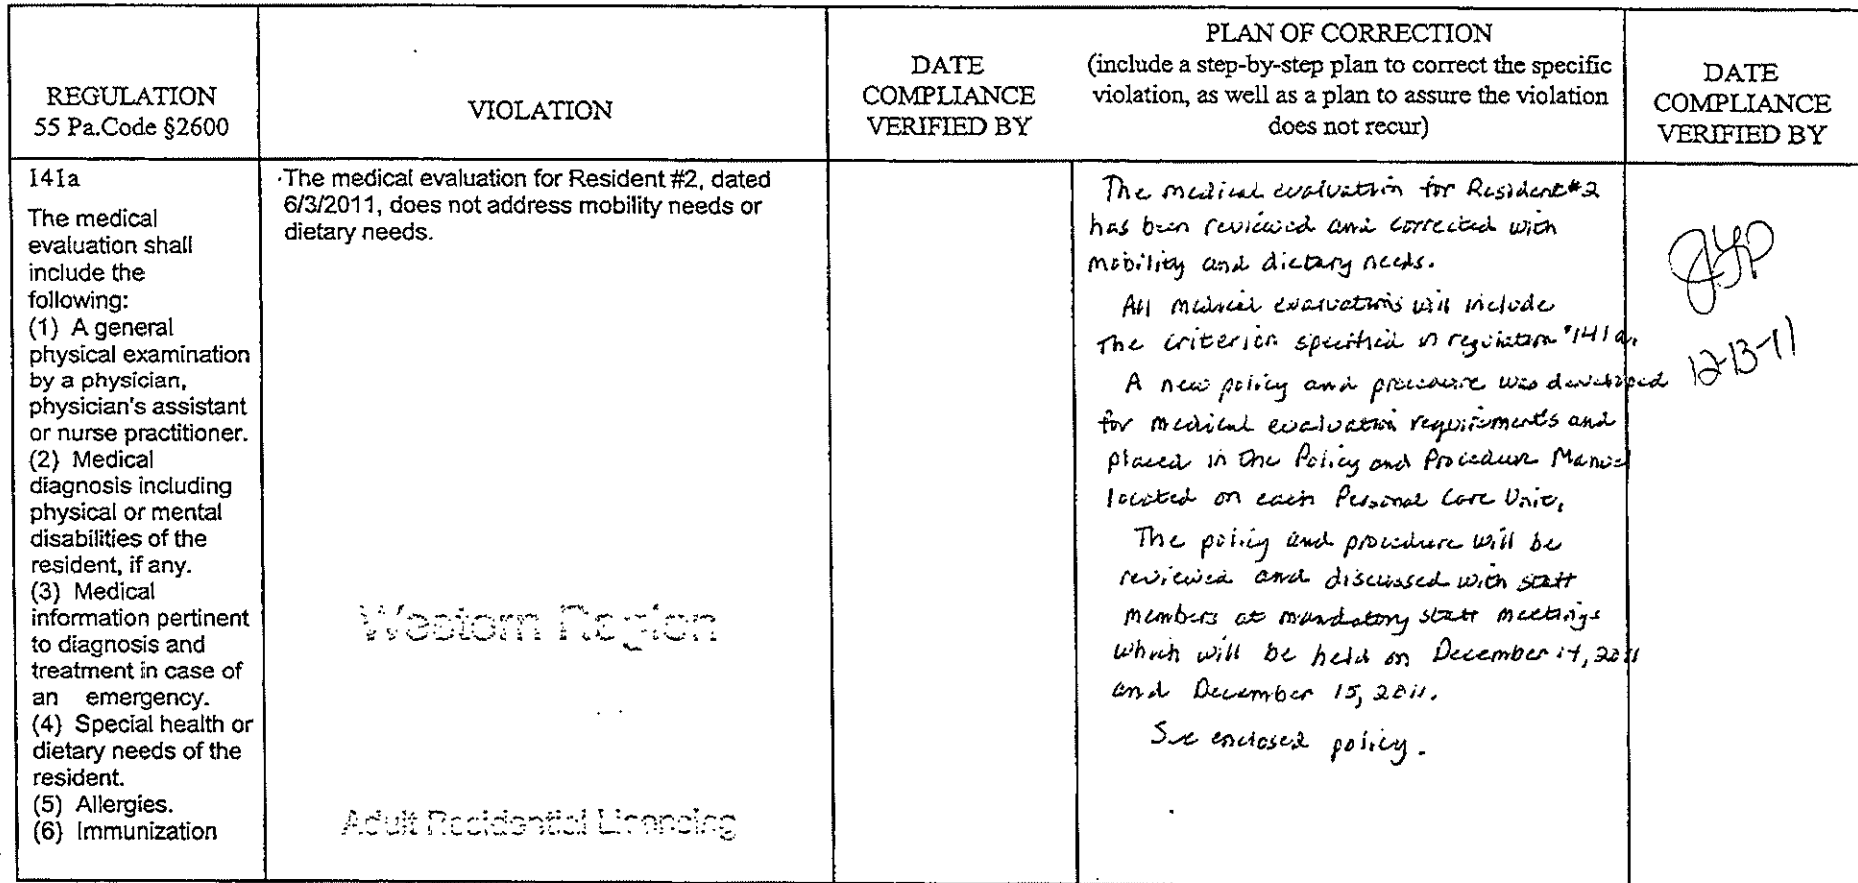 REGULATION
55 Pa.Code §2600
VIOLATION
DATE
COMPLIANCE
VERIFIED BY
PLAN OF CORRECTION
(include a step-by-step plan to correct the specific
violation, as well as a plan to assure the violation
does not recur)
DATE
COMPLIANCE
VERIFIED BY
141a
The medical
evaluation shall
include the
following:
(1) A general
physical examination
by a physician,
physician's assistant
or nurse practitioner.
(2) Medical
diagnosis including
physical or mental
disabilities of the
resident, if any.
(3) Medical
information pertinent
to diagnosis and
treatment in case of
an emergency.
(4) Special health or
dietary needs of the
resident.
(5) Allergies.
(6) Immunization
The medical evaluation for Resident #2, dated
6/3/2011, does not address mobility needs or
dietary needs.
Western Region
Adult Residential Licensing
The medical evaluation for Resident #2
has been reviewed and corrected with
mobility and dietary needs.
All medical evaluations will include
the criterion specified in regulation #141a.
A new policy and procedure was developed
for medical evaluation requirements and
placed in the Policy and Procedure Manual
located on each Personal Care Unit.
The policy and procedure will be
reviewed and discussed with staff
members at mandatory staff meetings
which will be held on December 14, 2011
and December 15, 2011.
See enclosed policy.
12-13-11